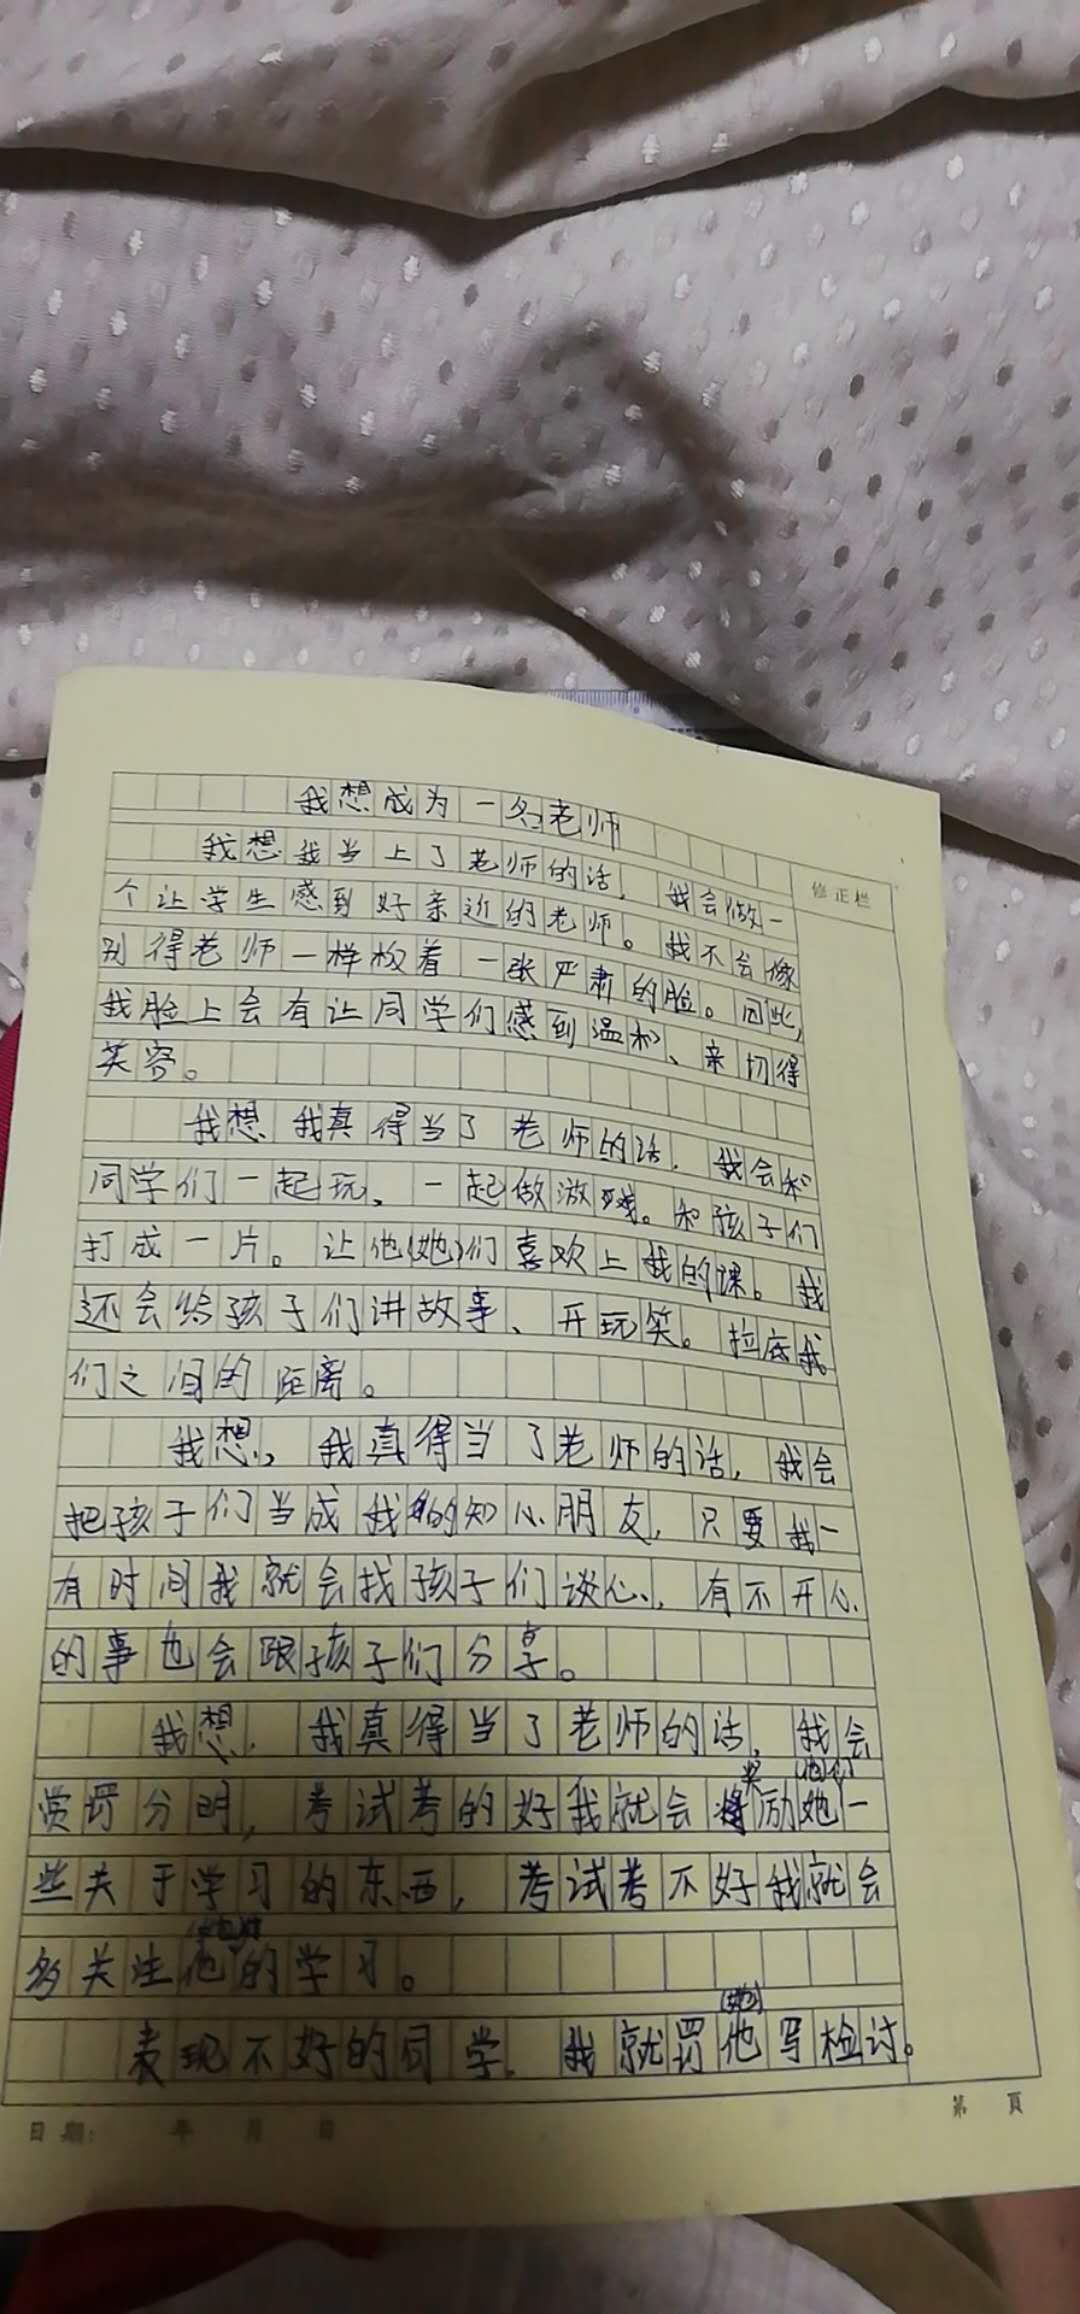 我想成为一名老师
我想我当上了老师的话，我会做一
修正栏
个让学生感到好亲近的老师。我不会像
别得老师一样板着一张严肃的脸。因此，
我脸上会有让同学们感到温和、亲切得
笑容。
我想我真得当了老师的话，我会和
同学们一起玩，一起做游戏。和孩子们
打成一片。让他(她)们喜欢上我的课。我
还会给孩子们讲故事、开玩笑。拉底我
们之间的距离。
我想，我真得当了老师的话，我会
把孩子们当成我的知心朋友，只要我一
有时间我就会找孩子们谈心，有不开心
的事也会跟孩子们分享。
我想，我真得当了老师的话，我会
赏罚分明，考试考的好我就会奖励她(他)们一
些关于学习的东西，考试考不好我就会
多关注他的学习。
表现不好的同学，我就罚他(她)写检讨。
日期： 年 月 日
第 頁